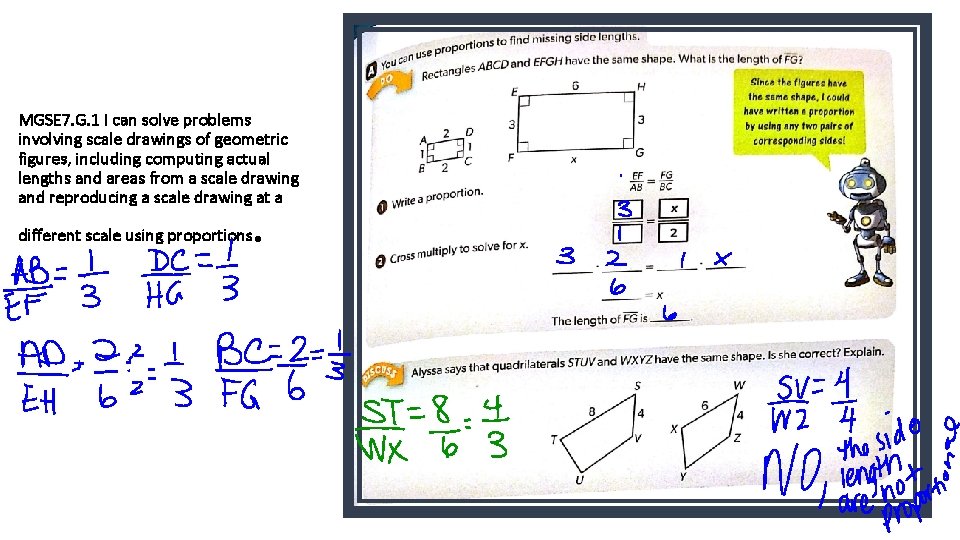 MGSE7.G.1 I can solve problems
involving scale drawings of geometric
figures, including computing actual
lengths and areas from a scale drawing
and reproducing a scale drawing at a
different scale using proportions.
AB/EF = 1/3 DC/HG = 1/3
AD/EH = 2/6 ÷ 2/2 = 1/3 BC/FG = 2/6 = 1/3
A You can use proportions to find missing side lengths.
DO
Rectangles ABCD and EFGH have the same shape. What is the length of FG?
E 6 H
3 3
F x G
A 2 D
1 1
B 2 C
Since the figures have
the same shape, I could
have written a proportion
by using any two pairs of
corresponding sides!
1 Write a proportion.
EF/AB = FG/BC
3/1 = x/2
2 Cross multiply to solve for x.
3 · 2 = 1 · x
6 = x
The length of FG is 6.
DISCUSS
Alyssa says that quadrilaterals STUV and WXYZ have the same shape. Is she correct? Explain.
S
8 4
T V
U
W
6 4
X Z
Y
ST/WX = 8/6 = 4/3
SV/WZ = 4/4
NO, the side
length
are not
proportional